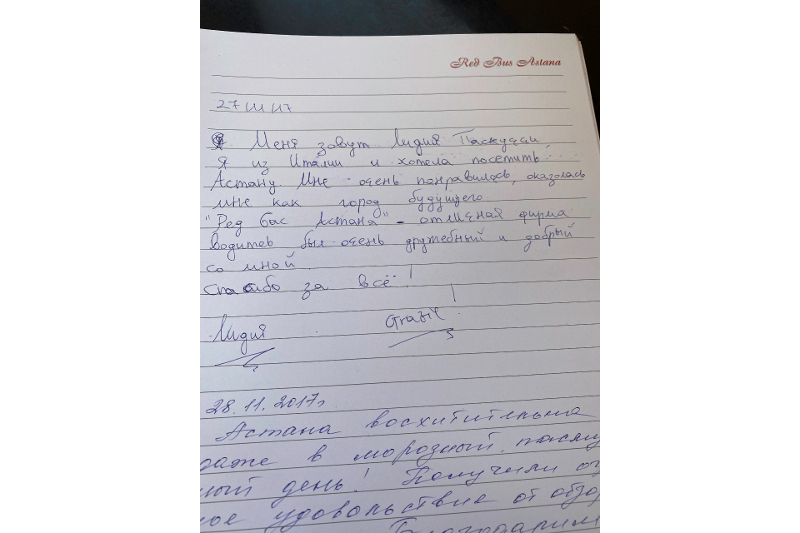 Red Bus Astana
27 III 17
Меня зовут Лидия Паскуцци,
я из Италии и хотела посетить
Астану. Мне очень понравилась, оказолась
мне как город будущего.
"Ред бас Астана" - отличная фирма.
водитев был очень дружебный и добрый
со мной.
спасибо за всё!
Лидия
Grazie!
28.11.2017г
Астана восхитительна
даже в морозный, пасму
ный день! Получили ог
ное удовольствие от обзо
Благодарим